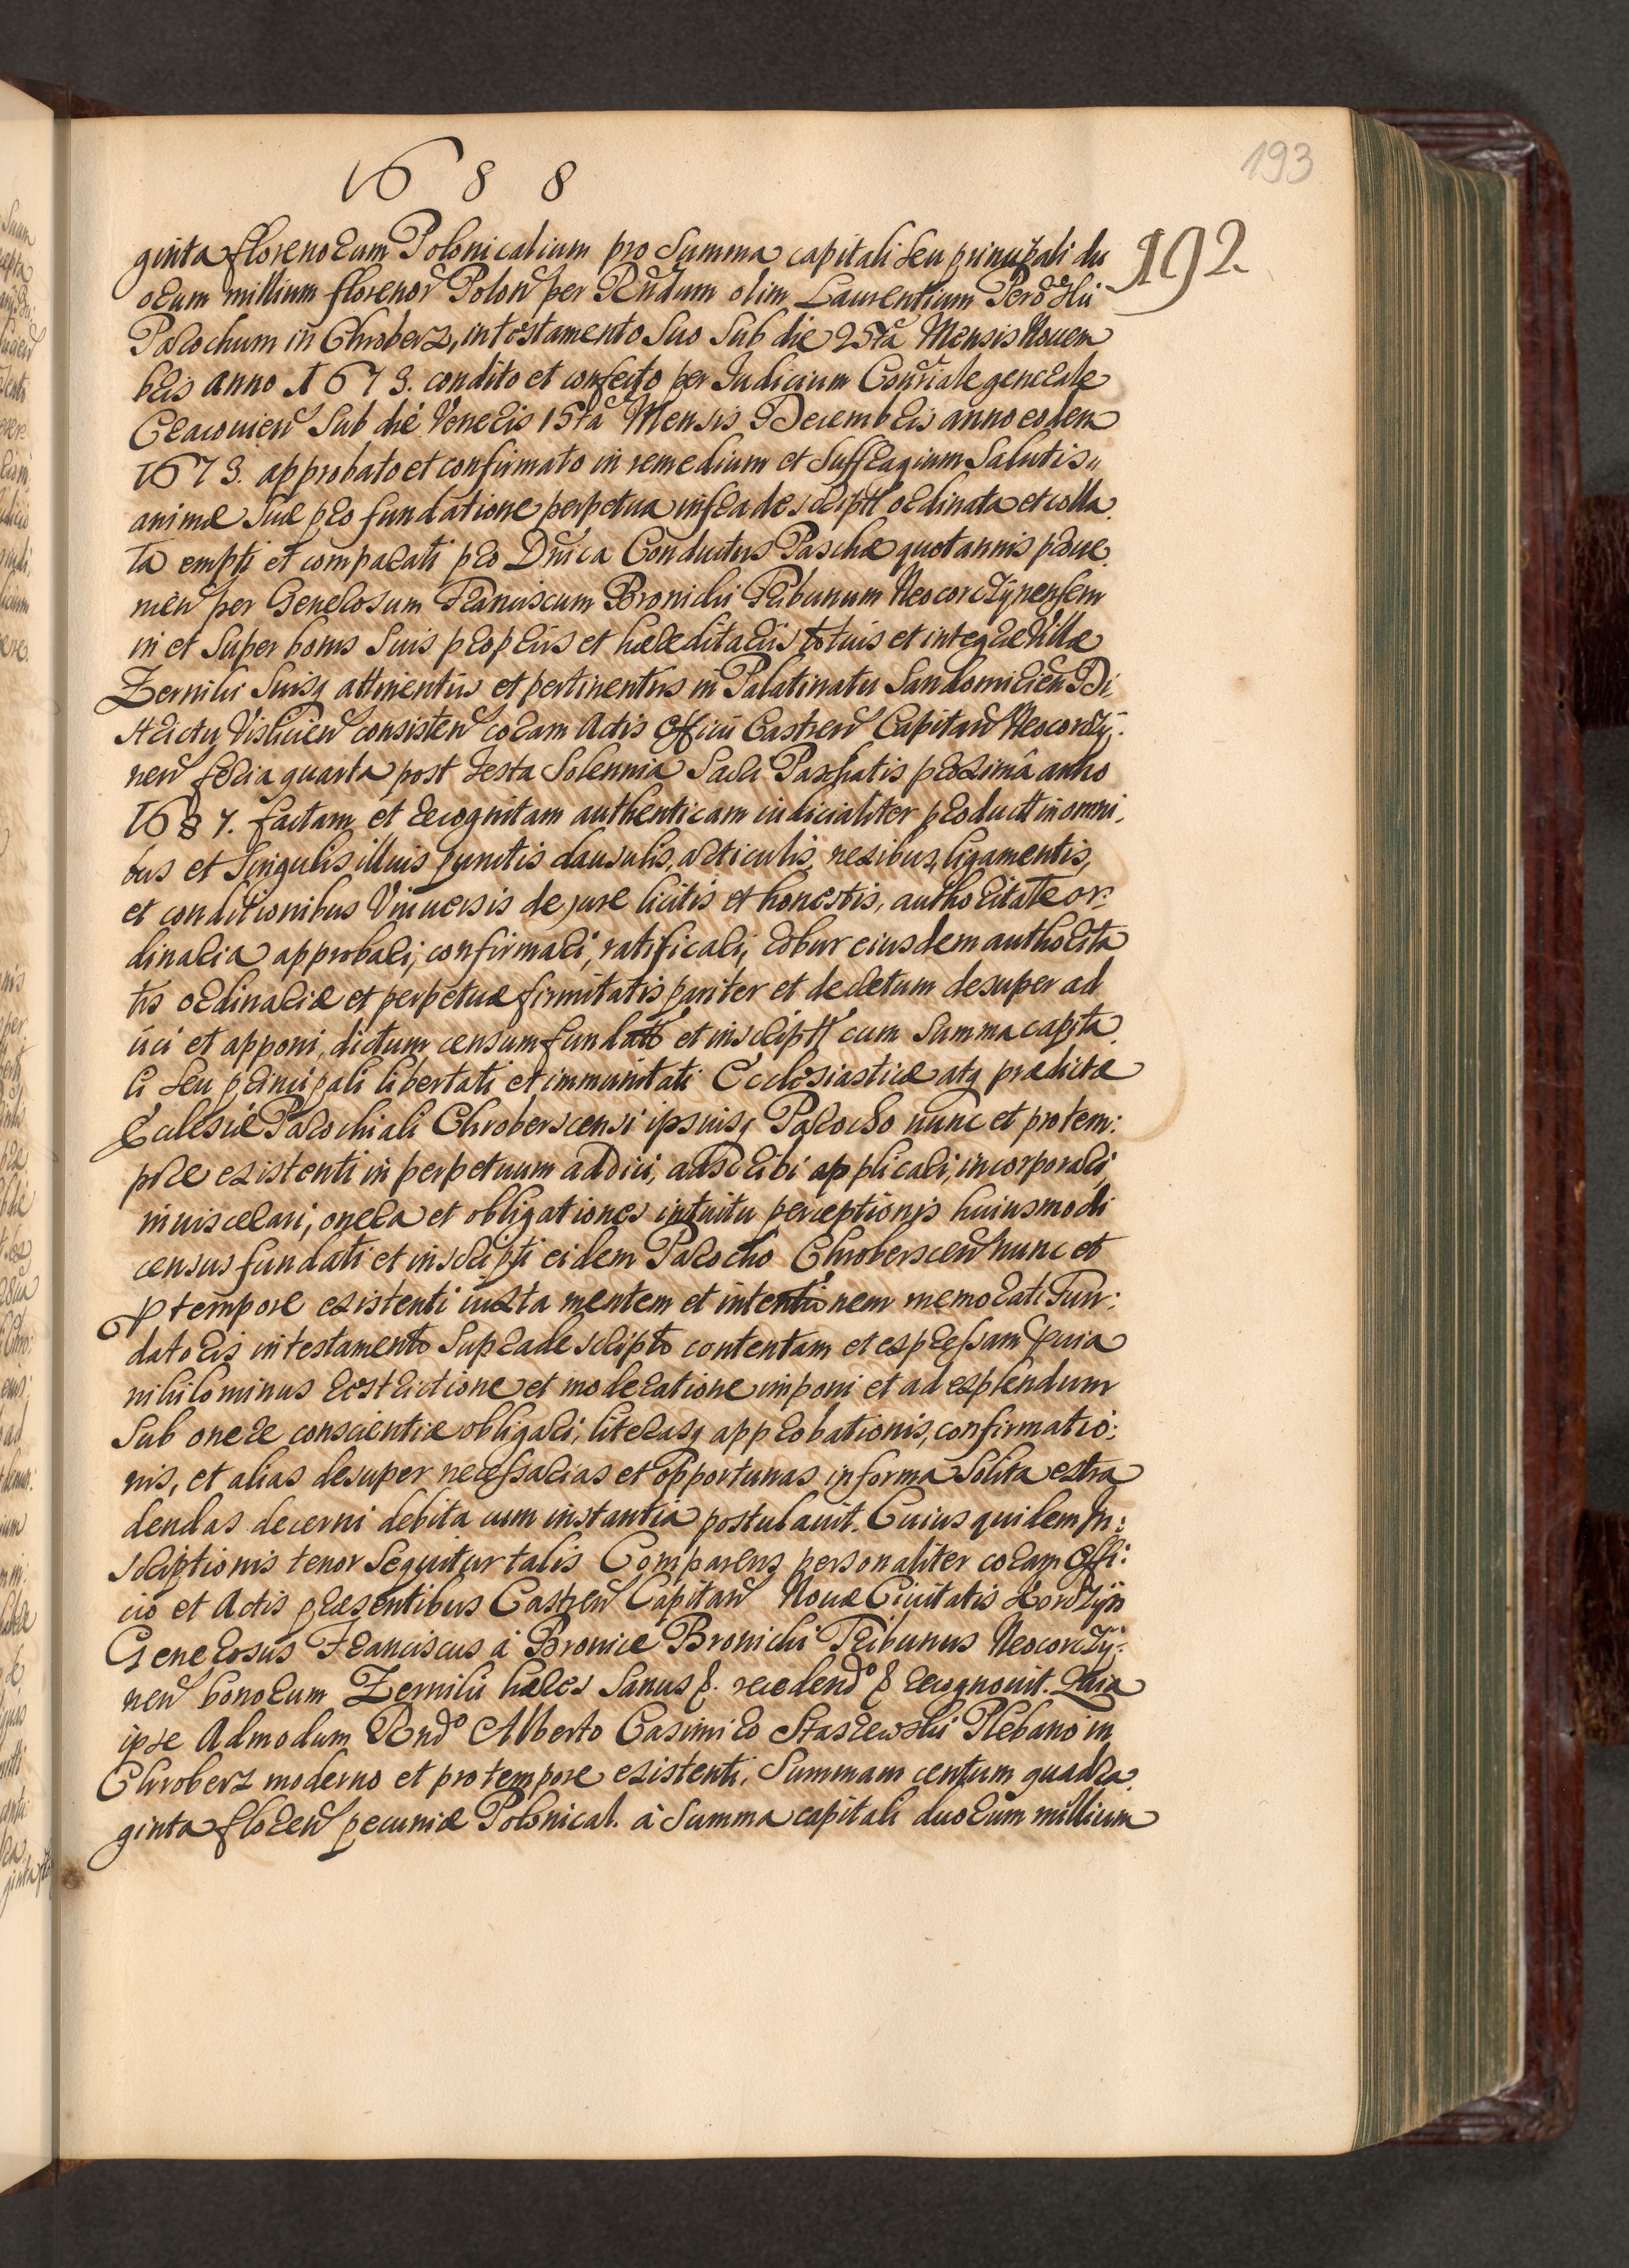 1688
193
192
ginta florenorum Polonicalium pro Summa capitali seu principali du
orum millium florenor Polon per Rndum olim Laurentium
Parochum in Chroberz, in testamento suo sub die 25ta Mensis Nouem
bris anno 1673. condito et confecto per Iudicium Consiriale generale
Cracouien sub die Veneris 15ta Mensis Decembris anno eodem
1673. approbato et confirmato in remedium et suffragium Salutis
animæ suæ pro fundatione perpetua infra descript ordinata et colla
ta empti et comparati pro Dnica Conductus Paschæ quotannis proue
nien per Generosum Franciscum Bronicki Tribunum Neocorczynensem
in et super bonis suis proprijs et hæreditarijs totius et integræ Villæ
Zerniki suisq attinentijs et pertinentijs in Palatinatu Sandomirien Di
strictu Vislicien consisten coram Actis Officii Castren Capitan Neocorczy:
nen feria quarta post festa Solennia Sacri Paschatis proximâ anno
1687. factam et recognitam authenticam iudicialiter product in omni,
bus et singulis illius punctis clausulis, articulis, nexibus, ligamentis,
et conditionibus Vniuersis de jure licitis et honestis, authoritate or:
dinaria approbari, confirmari, ratificari, robur eiusdem authorita
tis ordinariæ et perpetuæ firmitatis pariter et decretum desuper ad
iici et apponi, dictum censum fundatt et inscriptt cum Summa capita
li seu principali libertati et immunitati Ecclesiasticæ atq prædictæ
Ecclesiæ Parochiali Chroberscensi ipsiusq Parocho nunc et pro tem:
pore existenti in perpetuum addici, adscribi applicari, incorporari,
inuiscerari, onera et obligationes intuitu perceptionis huiusmodi
census fundati et inscripti eidem Parocho Chroberscen nunc et
p tempore existenti iuxta mentem et intentionem memorati Fun:
datoris in testamento supradescripto contentam et expressam
nihilominus restrictione et moderatione imponi et ad explendum
sub onere conscientiæ obligari, literasq approbationis, confirmatio:
nis, et alias desuper necessarias et opportunas in forma solita extra
dendas decerni debita cum instantia postulauit. Cuius quidem In:
scriptionis tenor sequitur talis Comparens personaliter coram Offi:
cio et Actis præsentibus Castren Capitan Nouæ Ciuitatis Korczyn
Generosus Franciscus à Bronice Bronicki Tribunus Neocorczy:
nen bonorum Zerniki hæres Sanus p. recedendo p recognouit. Quia
ipse Admodum Rndo Alberto Casimiro Staszewski Plebano in
Chroberz moderno et pro tempore existenti, Summam centum quadra
ginta floren pecuniæ Polonical. à Summa capitali duorum millium